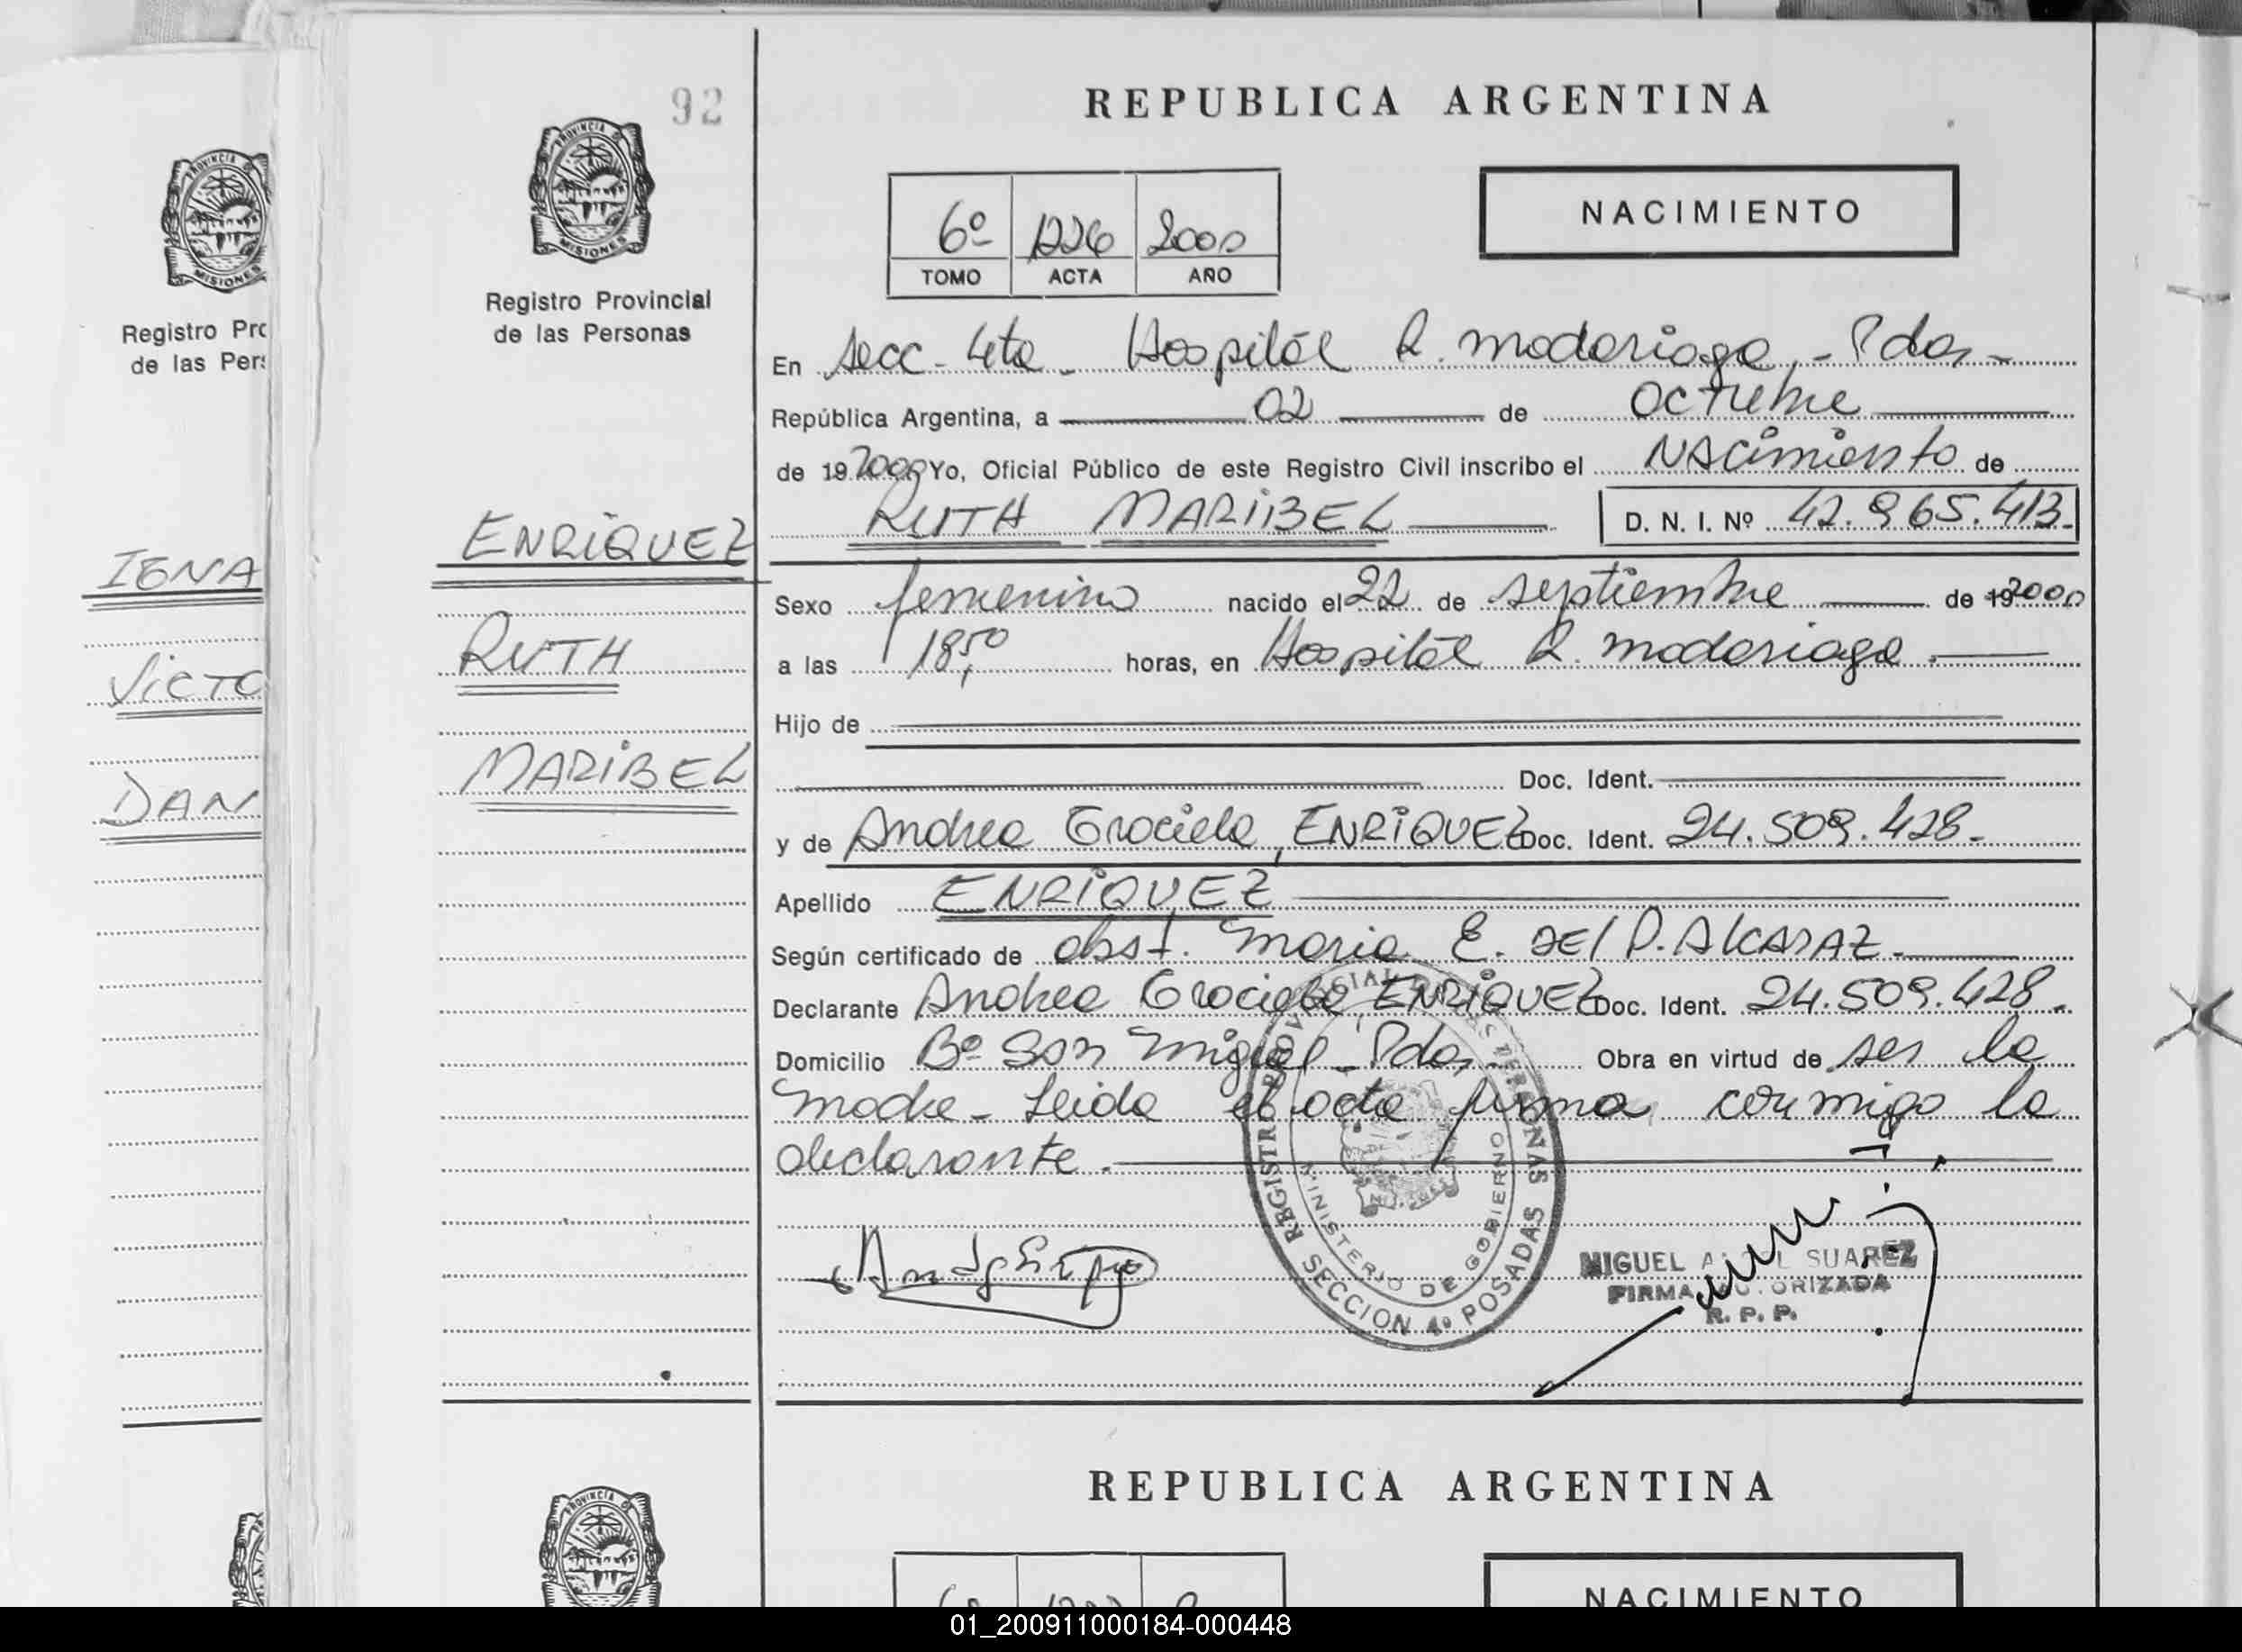 92
REPUBLICA ARGENTINA
PROVINCIA DE
MISIONES
Registro Provincial
de las Personas
6º 1226 2000
TOMO ACTA AÑO
NACIMIENTO
En Secc - 4ta - Hospital R. Madariaga - Pdas -
República Argentina, a 02 de octubre
de 192000 Yo, Oficial Público de este Registro Civil inscribo el NACimiento de
RUTH MARIBEL D. N. I. Nº 42.965.413.
ENRIQUEZ
RUTH
MARIBEL
Sexo femenino nacido el 22 de septiembre de 192000
a las 18,50 horas, en Hospital R. Madariaga.
Hijo de
Doc. Ident.
y de Andrea Graciela, ENRIQUEZ Doc. Ident. 24.509.428.-
Apellido ENRIQUEZ
Según certificado de obst. Maria E. DEl P. AlCARAZ.
Declarante Andrea Graciela ENRIQUEZ Doc. Ident. 24.509.428.
Domicilio Bº San Miguel - Pdas, Obra en virtud de ser la
madre - Leida el acta firma conmigo la
declarante.
REGISTRO PROVINCIAL DE LAS PERSONAS
MINISTERIO DE GOBIERNO
SECCION 4º POSADAS
MIGUEL SUAREZ
FIRMA AUTORIZADA
R. P. P.
Registro Pro
de las Pers
MISIONES
IGNA
VICTO
DAN
REPUBLICA ARGENTINA
PROVINCIA D
NACIMIENTO
01_200911000184-000448